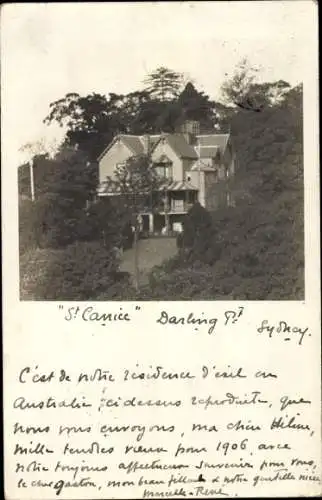 "St Canice" Darling Pt
Sydney.
C'est de notre résidence d'exil en
Australie, ci dessus reproduite, que
nous vous envoyons, ma chère Hélène,
mille tendres voeux pour 1906, avec
notre toujours affectueux souvenir pour vous,
le cher Gaston, mon beau filleul & notre gentille nièce
Marcelle-Renée